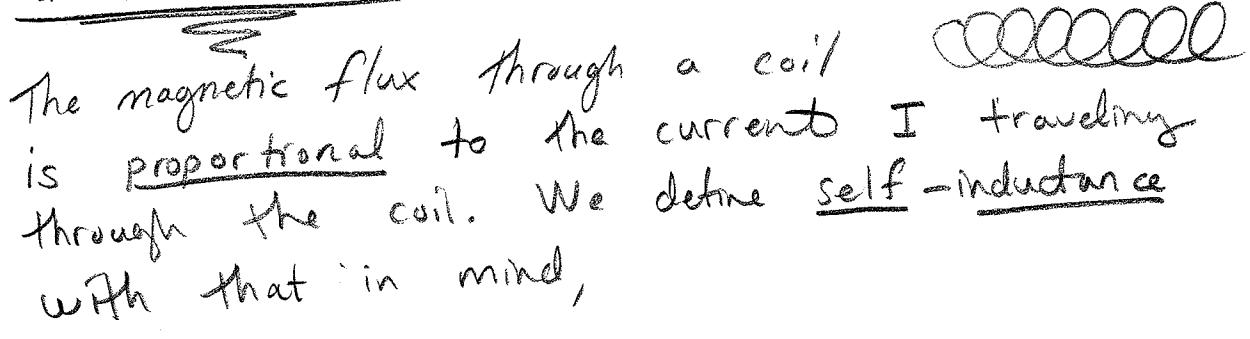 The magnetic flux through a coil
is proportional to the current I traveling
through the coil. We define self-inductance
with that in mind,